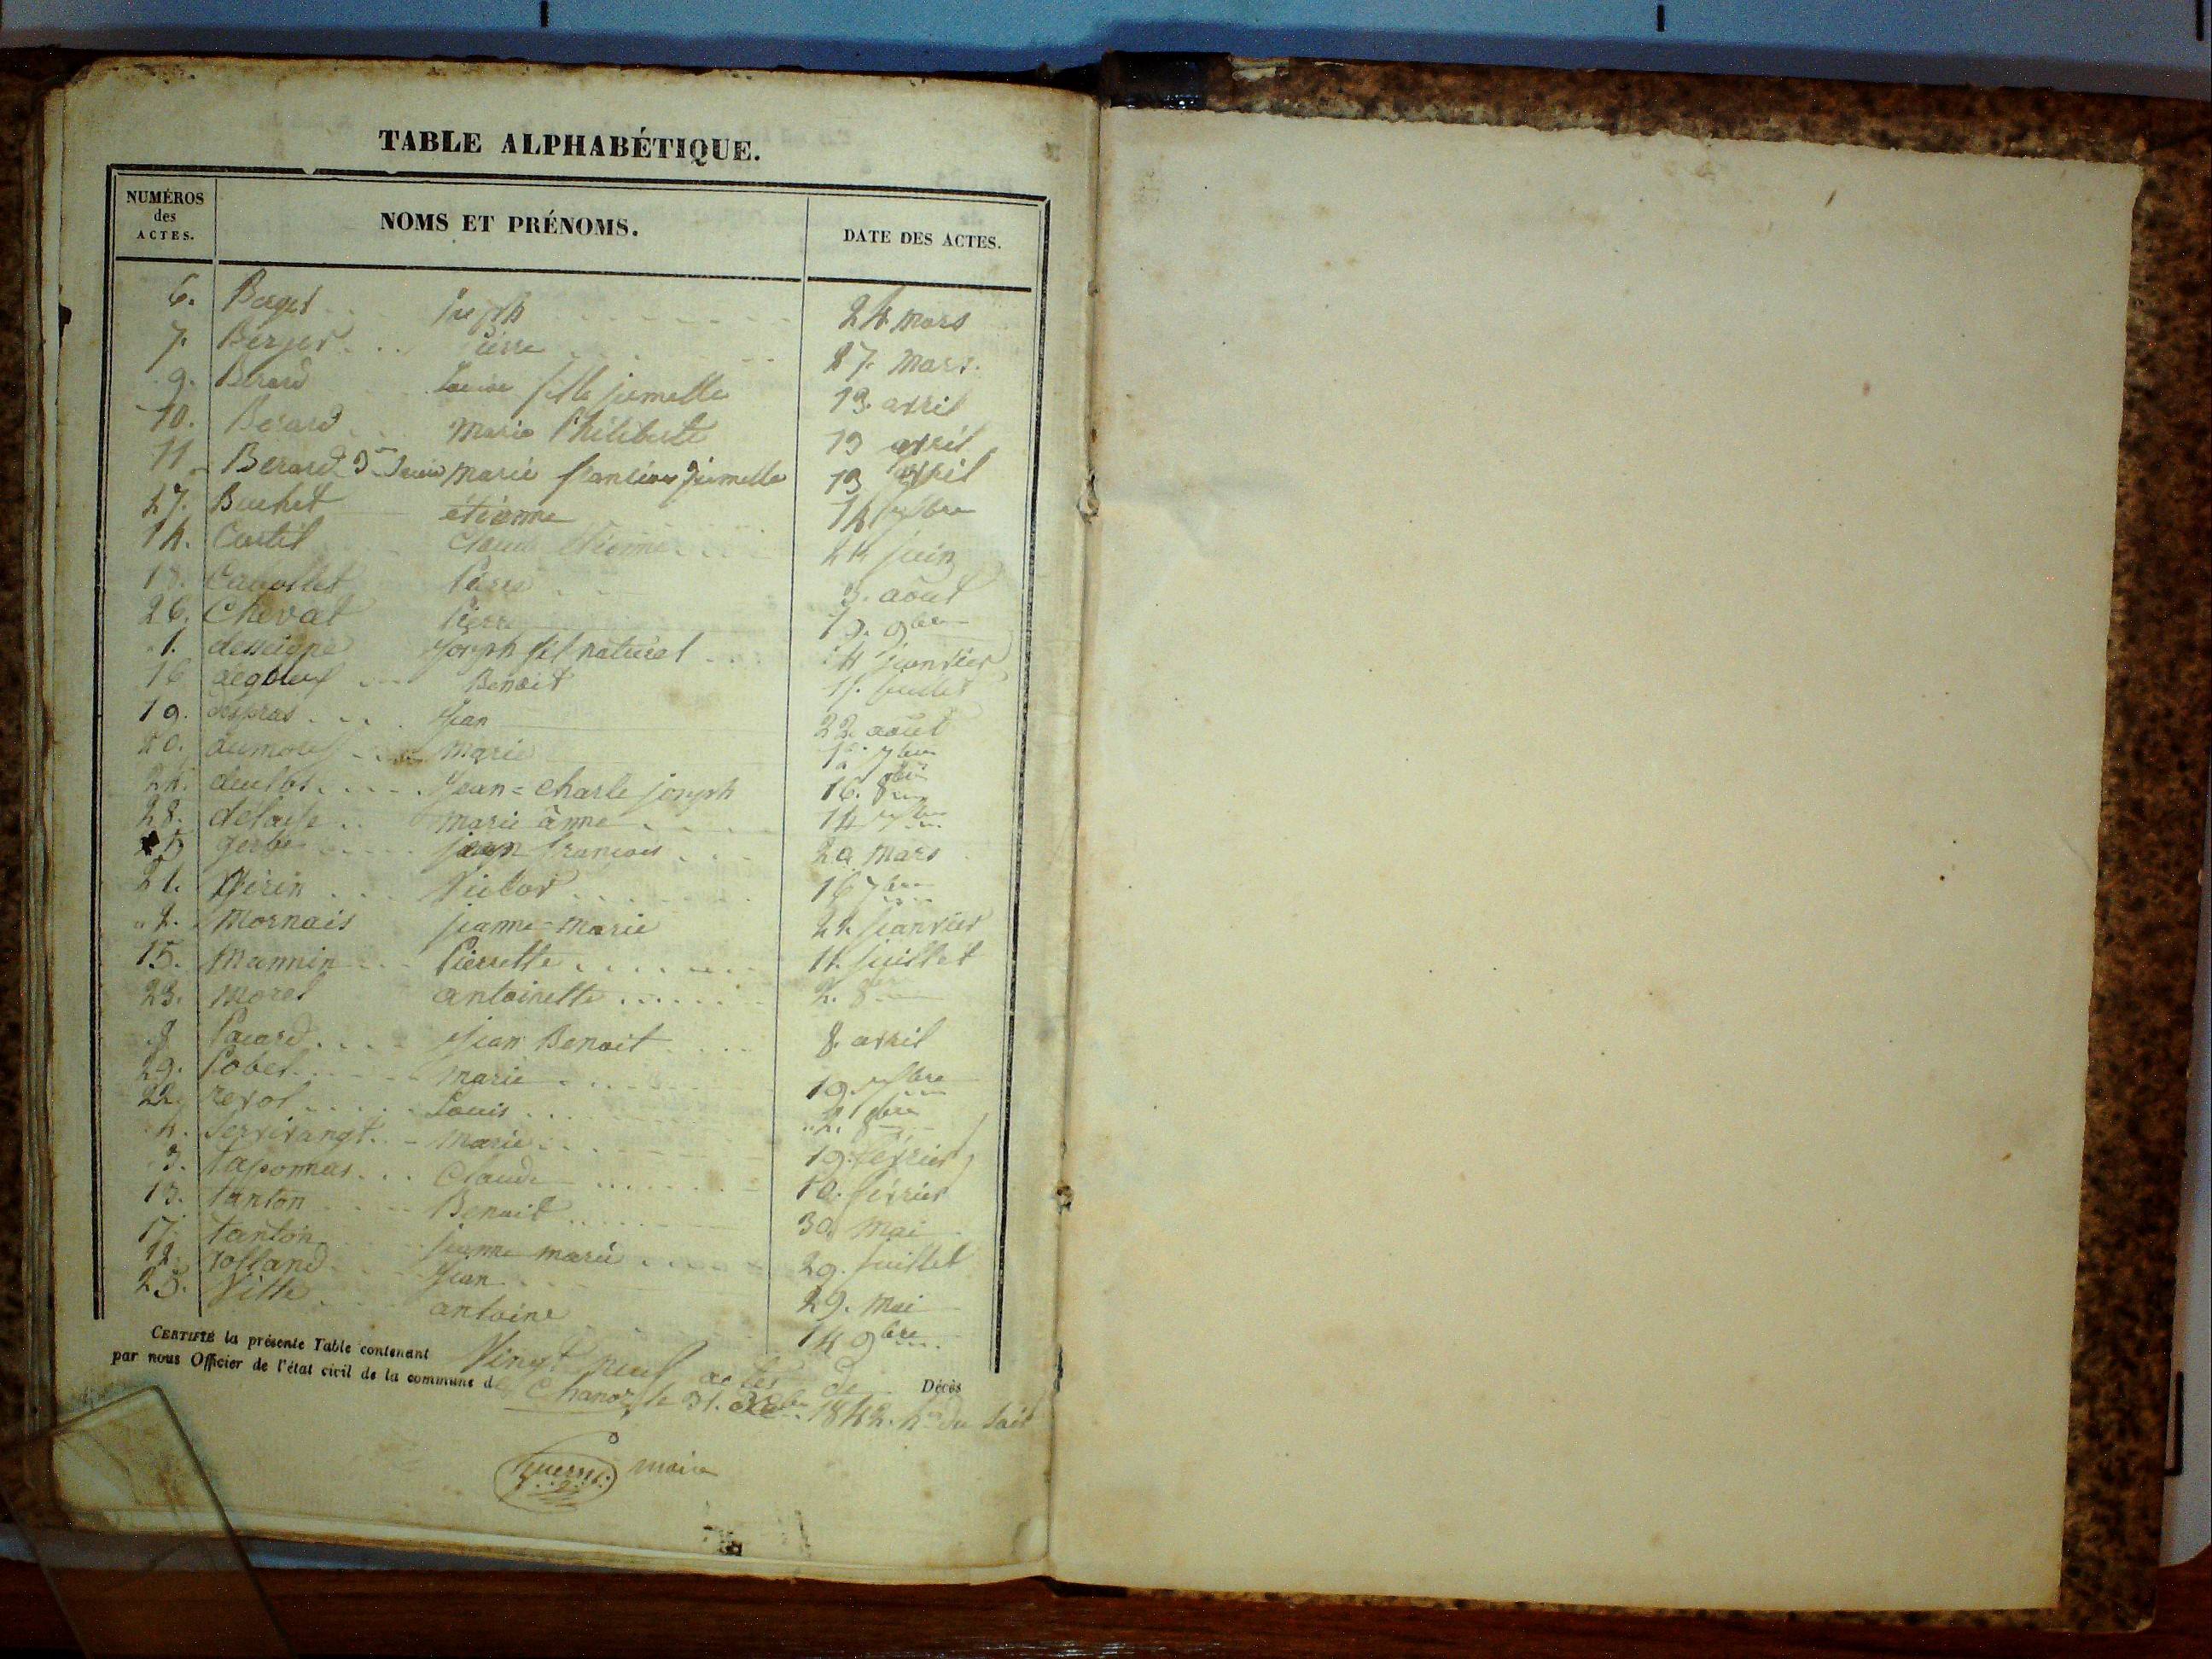 TABLE ALPHABÉTIQUE.
NUMÉROS des ACTES.
NOMS ET PRÉNOMS.
DATE DES ACTES.
6. Berger . . . Joseph 24 mars
7. Berger . . . Pierre 27. mars.
9. Berard Louise fille jumelle 13. avril
10. Berard . . marie Philiberte 13 avril
11. Berard marie jumelle 13 avril
27. Buchet étienne 14
14. Curtil Claude étienne . . . 24 juin
18. Pierre . . 3. août
26. Chevat Pierre 9bre
1. desseigne Joseph fils naturel . . . 14 janvier
16 Benoit 11. juillet
19. despras . . . . Jean 22. août
20. marie 7bre
24. . . . . Jean = Charle joseph 16. 8bre
28. . . marie ânne . . . . 14
5 gerbe . . . . jean francois . . . 20 mars
21. . . . Victor . . . . 16 7bre
2. Mornais jeanne = marie 22 janvier
15. Mannin . . - Pierrette . . . . . . . 11. juillet
23. morel antoinette . . . . . . 2. 8bre
8 Pacard . . . . jean Benoit . . . . 8. avril
29. Pobel . . . - - marie . . . . . . . 19.
22. revol . . . . . Louis . . . . 2. 8bre
4. . - marie . . . 19. février
3. taponnas . . . Claude . . . . . . . 10. février
13. tanton . . . . Benoit . . . . . 30. mai
17. tanton jeanne marie . . . . . 29. juillet
12. rolland . . Jean . . . 29. mai
25. Vitte . . . antoine 14 9bre.
CERTIFIÉ la présente Table contenant Vingt neuf actes de Décès
par nous Officier de l'état civil de la commune de Chanoz le 31. Xbre 1842. du soir
maire